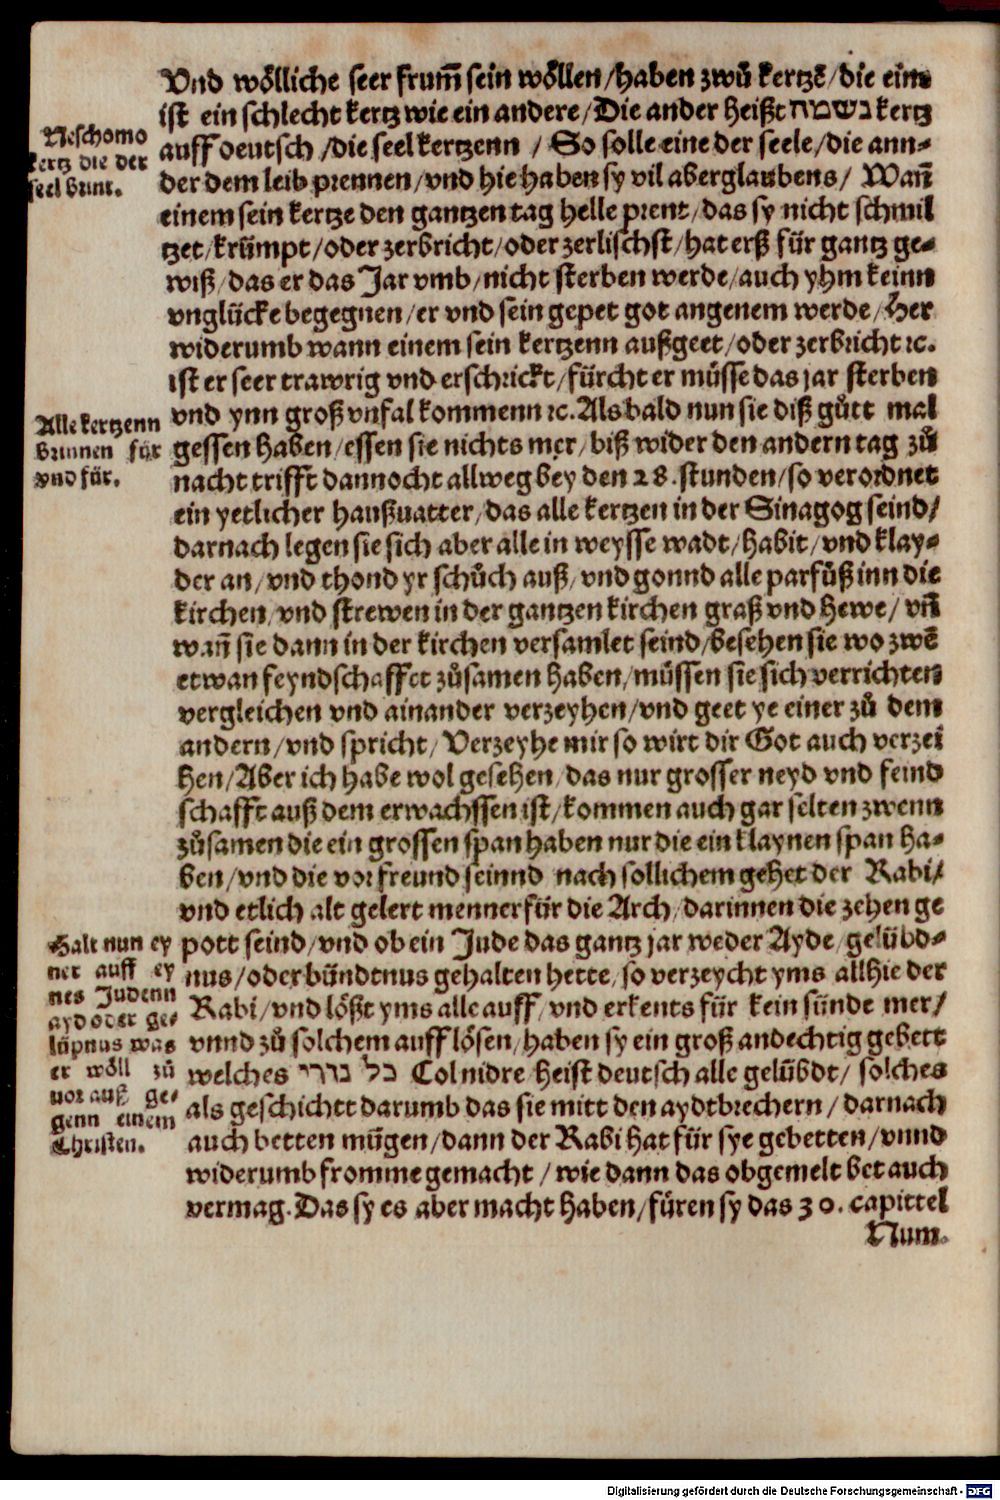 Vnd wölliche seer frum̃ sein wöllen/haben zwů kertzẽ/die eine
ist ein schlecht kertz wie ein andere/Die ander heißt נשמה kertz
auff deutsch /die seel kertzenn / So solle eine der seele/die ann-
der dem leib prennen/vnd hie haben sy vil aberglaubens/ Wañ
einem sein kertze den gantzen tag helle prent/das sy nicht schmil
tzet/krümpt/oder zerbricht/oder zerlischst/hat erß für gantz ge-
wiß/das er das Jar vmb/nicht sterben werde/auch yhm keinn
vnglücke begegnen/er vnd sein gepet got angenem werde/Her
widerumb wann einem sein kertzenn außgeet/oder zerbricht ꝛc.
ist er seer trawrig vnd erschrickt/fürcht er müsse das jar sterben
vnd ynn groß vnfal kommenn ꝛc. Als bald nun sie diß gůtt mal
gessen haben/essen sie nichts mer/biß wider den andern tag zů
nacht trifft dannocht allweg bey den 28. stunden/so verordnet
ein yetlicher haußuatter/das alle kertzen in der Sinagog seind/
darnach legen sie sich aber alle in weysse wadt/habit/vnd klay-
der an/vnd thond yr schůch auß/vnd gonnd alle parfůß inn die
kirchen/vnd strewen in der gantzen kirchen graß vnd hewe/ vñ
wañ sie dann in der kirchen versamlet seind/besehen sie wo zwẽ
etwan feyndschafft zůsamen haben/müssen sie sich verrichten
vergleichen vnd ainander verzeyhen/vnd geet ye einer zů dem
andern/vnd spricht/Verzeyhe mir so wirt dir Got auch verzei
hen/Aber ich habe wol gesehen/das nur grosser neyd vnd feind
schafft auß dem erwachssen ist/kommen auch gar selten zwenn
zůsamen die ein grossen span haben nur die ein klaynen span ha-
ben/vnd die vor freund seinnd nach sollichem gehet der Rabi/
vnd etlich alt gelert menner für die Arch/darinnen die zehen ge
pott seind/vnd ob ein Jude das gantz jar weder Ayde/gelübd-
nus/oder bündtnus gehalten hette/so verzeycht yms allhie der
Rabi/vnd lößt yms alle auff/vnd erkents für kein sünde mer/
vnnd zů solchem auff lösen/haben sy ein groß andechtig gebett
welches כל נדרי Col nidre/heist deutsch alle gelübdt/ solches
als geschicht darumb das sie mitt den aydtbrechern/darnach
auch betten mügen/dann der Rabi hat für sye gebetten/vnnd
widerumb fromme gemacht /wie dann das obgemelt bet auch
vermag. Das sy es aber macht haben/füren sy das 30. capittel
Num.
Neschomo
kertz die der
seel brint.
Alle kertzenn
brinnen für
vnd für.
Halt nun ey
ner auff ey
nes Judenn
ayd oder ge-
lüpnus was
er wöll zů
uor auß ge-
genn einem
Christen.
Digitalisierung gefördert durch die Deutsche Forschungsgemeinschaft - DFG